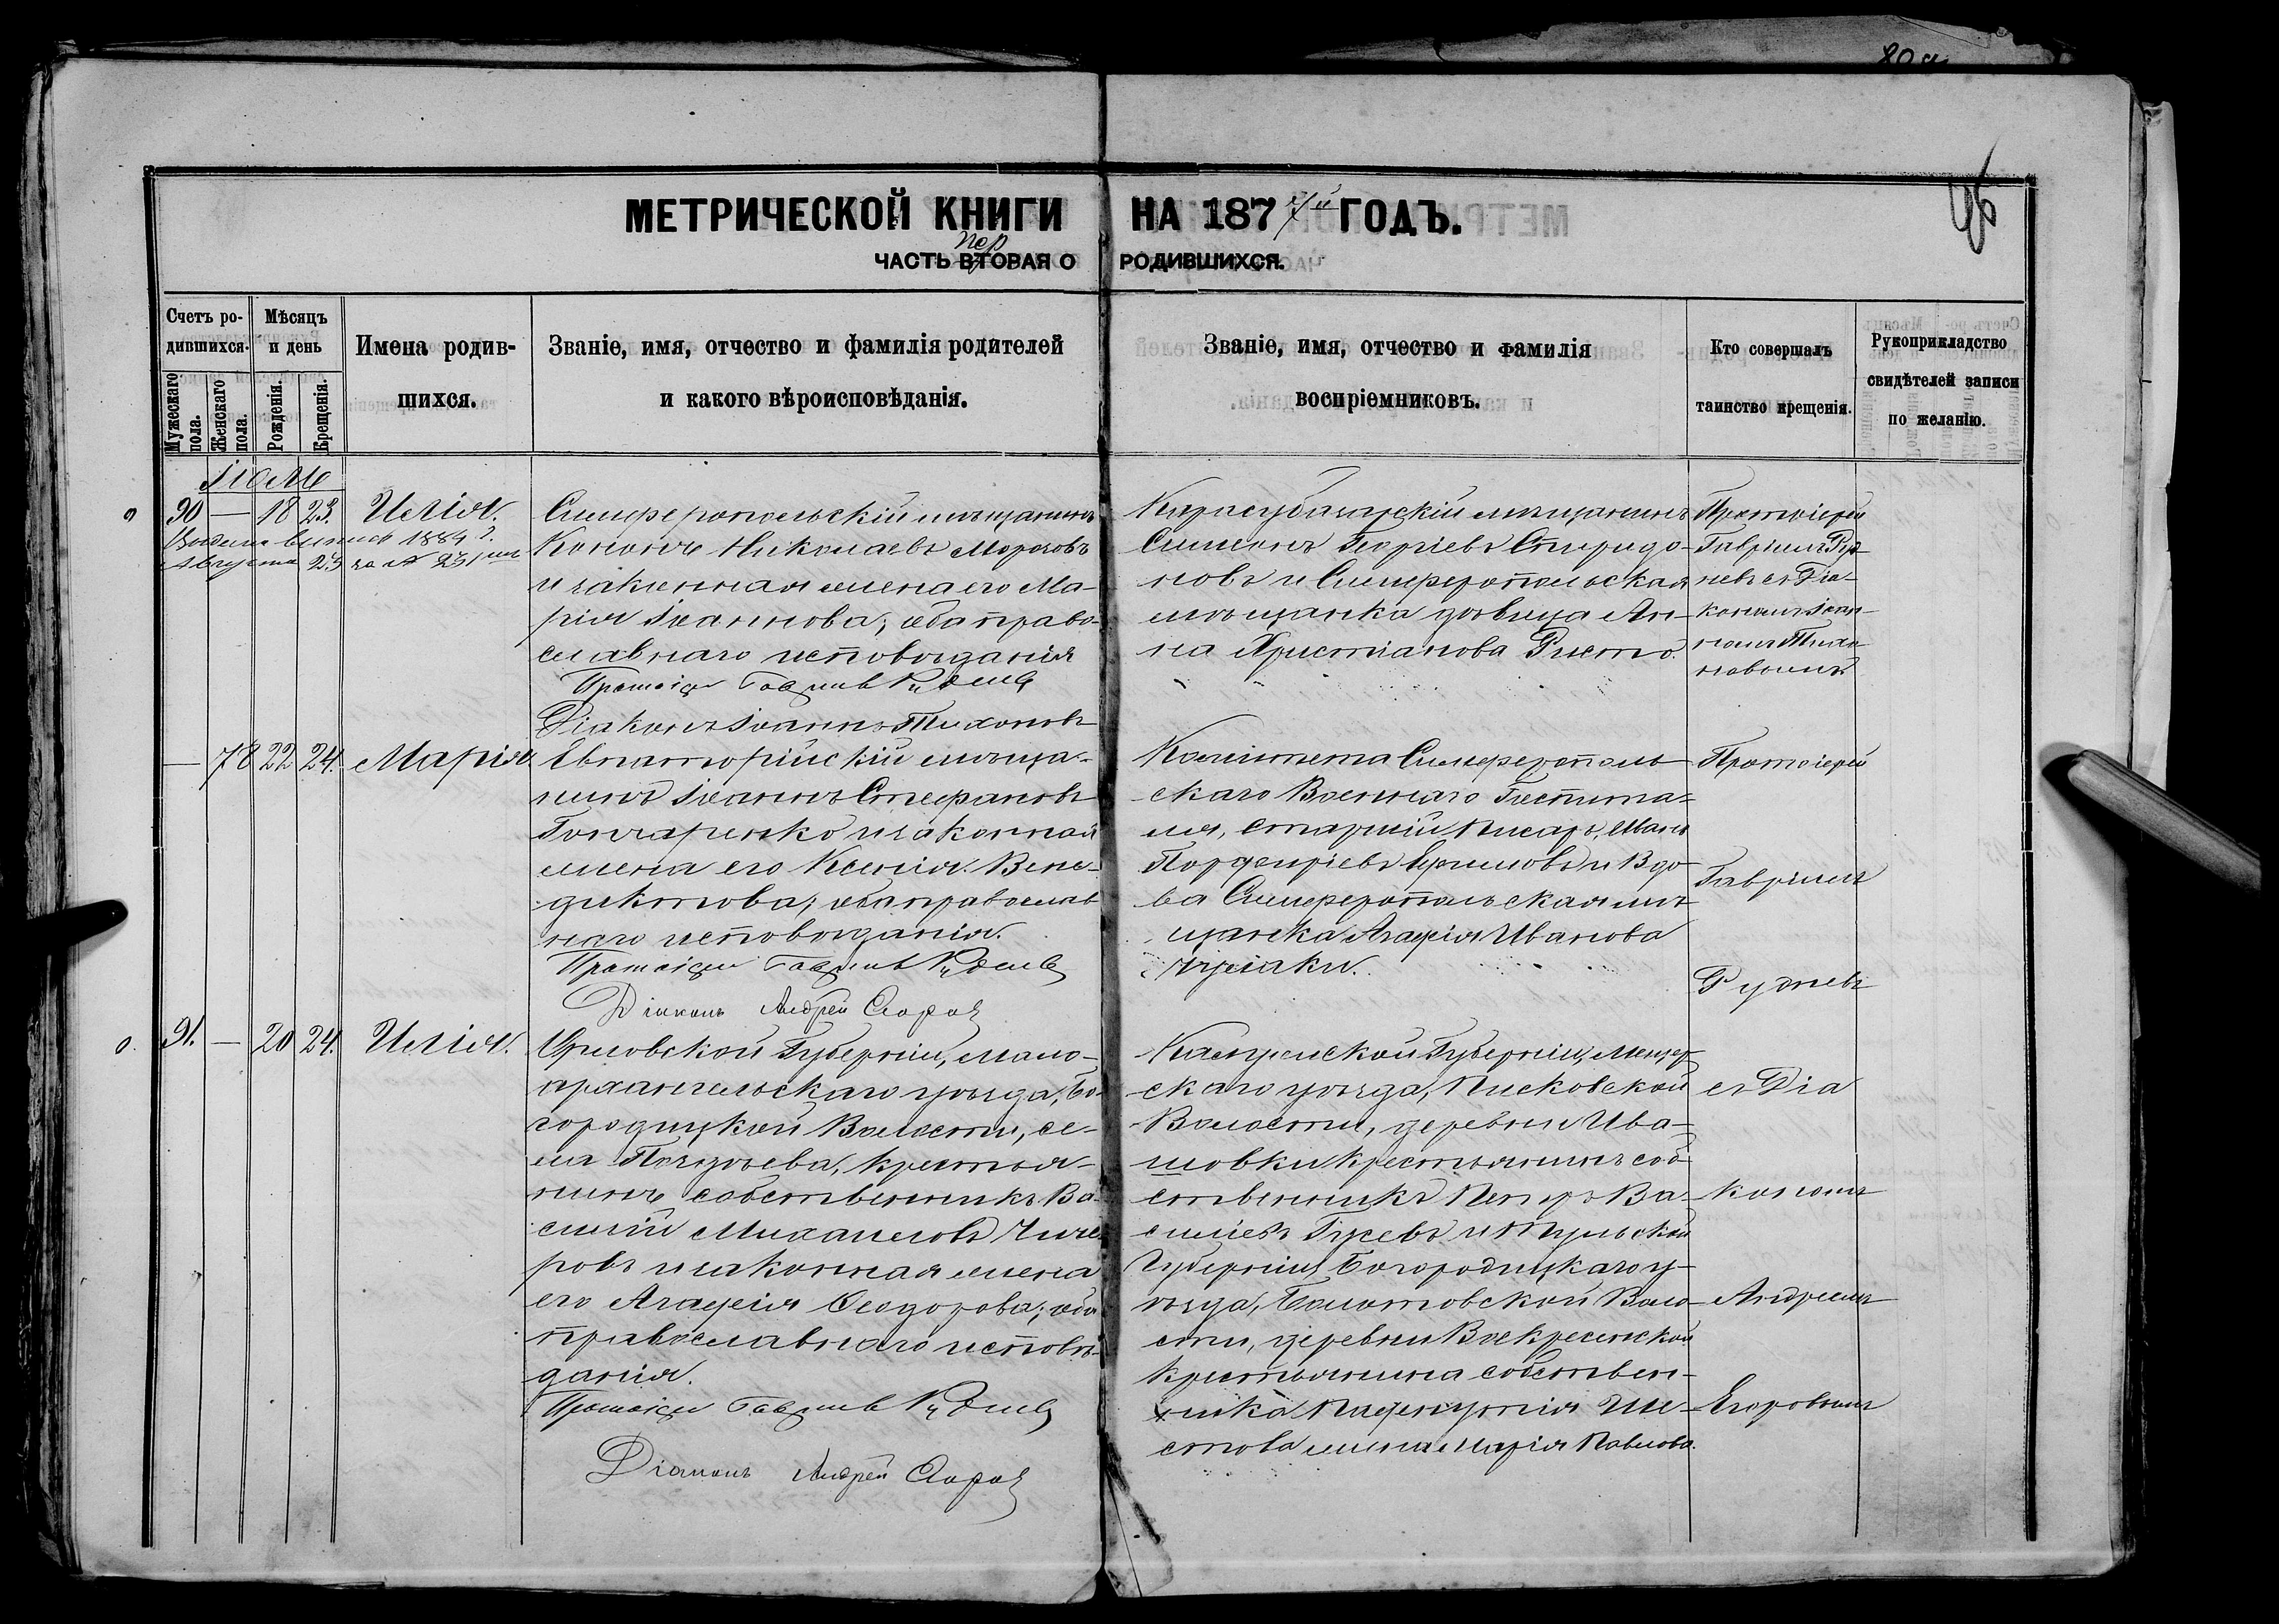 МЕТРИЧЕСКОЙ КНИГИ НА 1877й ГОДЪ.
пер
ЧАСТЬ ВТОРАЯ О РОДИВШИХСЯ.
96
Счетъ ро-
дившихся.
Мужескаго пола.
Женскаго пола.
Мѣсяцъ
и день
Рожденія.
Крещенія.
Имена родив-
шихся.
Званіе, имя, отчество и фамилія родителей
и какого вѣроисповѣданія.
Званіе, имя, отчество и фамилія
воспріемниковъ.
Кто совершалъ
таинство крещенія.
Рукоприкладство
свидѣтелей записи
по желанію.
Іюль
90 — 18 23. Илія.
Августа 23 за №
Симферопольскій мѣщанинъ
Кононъ Николаевъ Морозовъ
и законная жена его Ма-
рія Іоаннова; оба право-
славнаго исповѣданія
Протоіерей Гавріилъ Рудневъ
Діаконъ Іоаннъ Тихоновъ
Карасубазарскій мѣщанинъ
Симеонъ Георгіевъ Спиридо-
новъ и Симферопольская
мѣщанка дѣвица Ан-
на Христіанова Ристо.
Протоіерей
Гавріилъ Руд-
невъ съ Діа-
кономъ Іоан-
номъ Тихо-
новымъ
— 78 22 24. Марія
Евпаторійскій мѣща-
нинъ Іоаннъ Стефановъ
Гончаренко и законная
жена его Ксенія Вене-
диктова, оба православ
наго исповѣданія.
Протоіерей Гавріилъ Рудневъ
Діаконъ Андрей
Симферополь-
скаго Военнаго Госпита-
ля, старшій Писарь, Иванъ
Порфиріевъ и Вдо-
ва Симферопольская мѣ-
щанка Агафія Иванова
Протоіерей
Гавріилъ
Рудневъ
91. — 20 24. Илія.
Орловской Губерніи, Мало-
архангельскаго уѣзда, Бо-
городицкой Волости, се-
ла крестья-
нинъ собственникъ Ва-
силій Михаиловъ
ровъ и законная жена
его Агафія Ѳеодорова; оба
православнаго исповѣ-
данія.
Протоіерей Гавріилъ Рудневъ
Діаконъ Андрей
Губерніи,
скаго уѣзда, Писковской
Волости, деревни Ива-
шовки крестьянинъ соб-
ственникъ Петръ Ва-
силіевъ Гусевъ и Тульской
Губерніи Богородицкаго у-
ѣзда, Воло-
сти, деревни Воскресенской
крестьянина собствен-
ника Пафнутія Ше-
стова жена Марія Павлова.
съ Діа
кономъ
Андреемъ
Егоровымъ